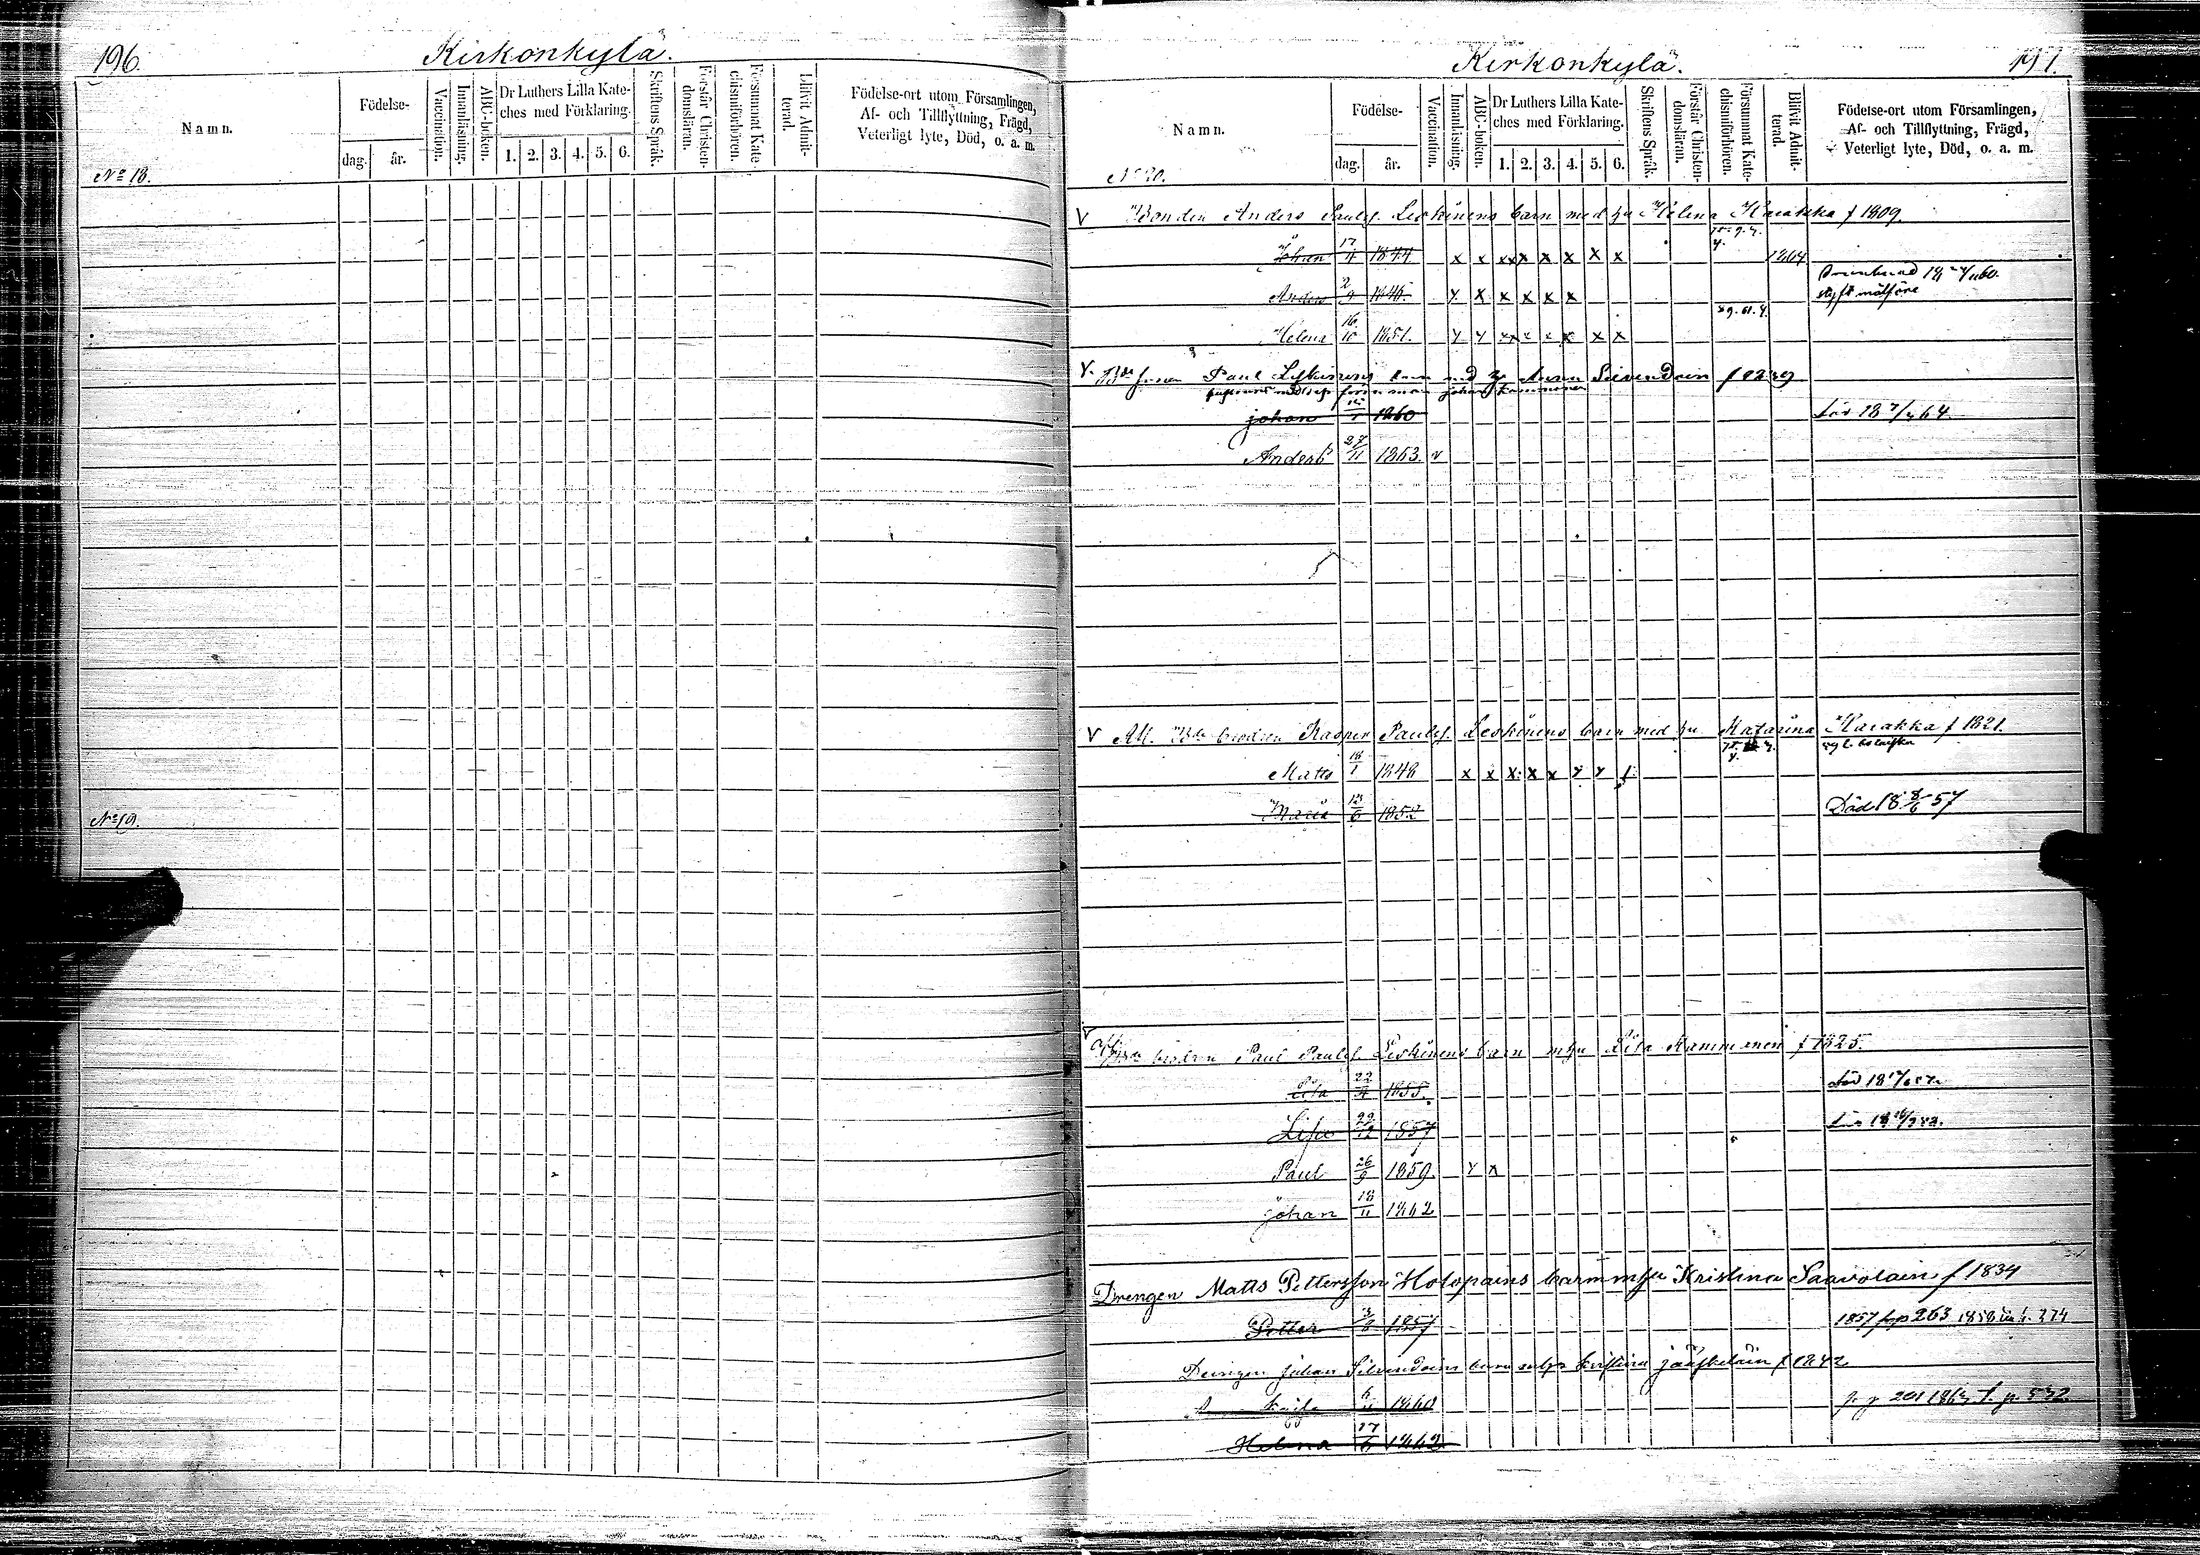 196.
Kirkonkylä.
Namn.
Födelse-
dag.
år.
Vaccination.
Innanläsning.
ABC-boken.
Dr Luthers Lilla Kate-
ches med Förklaring.
1. 2. 3. 4. 5. 6.
Skriftens Språk.
Förstår Christen-
domsläran.
Försummat Kate-
chismiförhören.
Blifvit Admit-
terad.
Födelse-ort utom Församlingen,
Af- och Tillflyttning, Frägd,
Veterligt lyte, Död, o. a. m.
No 18.
No 19.
Kirkonkylä.
197.
Namn.
Födelse-
dag.
år.
Vaccination.
Innanläsning.
ABC-boken.
Dr Luthers Lilla Kate-
ches med Förklaring.
1. 2. 3. 4. 5. 6.
Skriftens Språk.
Förstår Christen-
domsläran.
Försummat Kate-
chismiförhören.
Blifvit Admit-
terad.
Födelse-ort utom Församlingen,
Af- och Tillflyttning, Frägd,
Veterligt lyte, Död, o. a. m.
No 20.
V Bonden Anders Paulsf. Leskinens barn med hu Helena Karakka f 1809.
Johan 17/4 1844 x x xxx x x x x 1864
Anders 2/9 1846 x x x x x x
Helena 16/10 1851.
V Paul Leskinens barn med hu Anna Sivendoin f
johan 1860
Anders 27/11 1863. v
V Afl. Bde brodren Kasper Paulsf. Leskinens barn med hu Katarina Karakka f 1821.
Matts 18/1 1848 x x x x x
Maria 12/6 1852 Död 18 8/6 57
V brodren Paul Paulsf. Leskinens barn mhu Lisa Kammonen f 1825.
Lisa 22/4 1855.
Lisa 22/12 1857
Paul 26/9 1859.
johan 18/11 1862
Drengen Matts Pettersson Holopains barn mhu Kristina Saavolain f 1834
Petter 1857 1857 fr p 263 1858
Drengen Johan Sivendoins barn mhu Kristina jääskeläin f 1842
1860 p. 201
Helena 17/6 1862